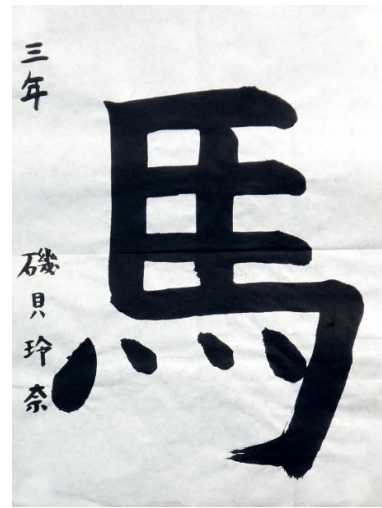 馬
三年 磯貝玲奈